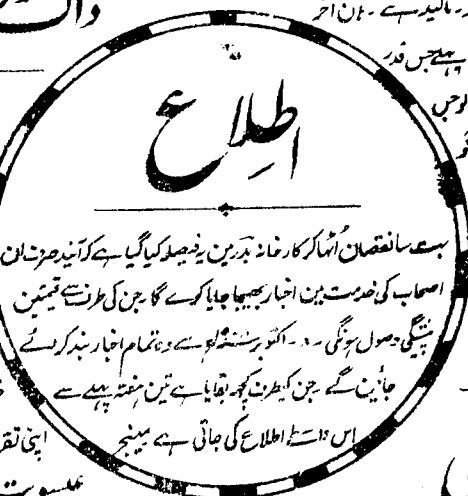 اطلاع
بہت سا نقصان اُٹھا کر کارخانہ بدر مین یہ فیصلہ کیا گیا ہے کہ آیندہ صرف ان
اصحاب کی خدمت مین اخبار بھیجا جایا کرے گا جن کی طرف سے قیمتین
پیشگی وصول ہونگی - ۸ - اکتوبر سے وہ تمام اخبار بند کر دئے
جائین گے - جن کیطرف کچھ بقایا ہے تین ہفتہ پہلے سے
اس واسطے اطلاع کی جاتی ہے مینجر
پہلے جس قدر
اپنی تقر